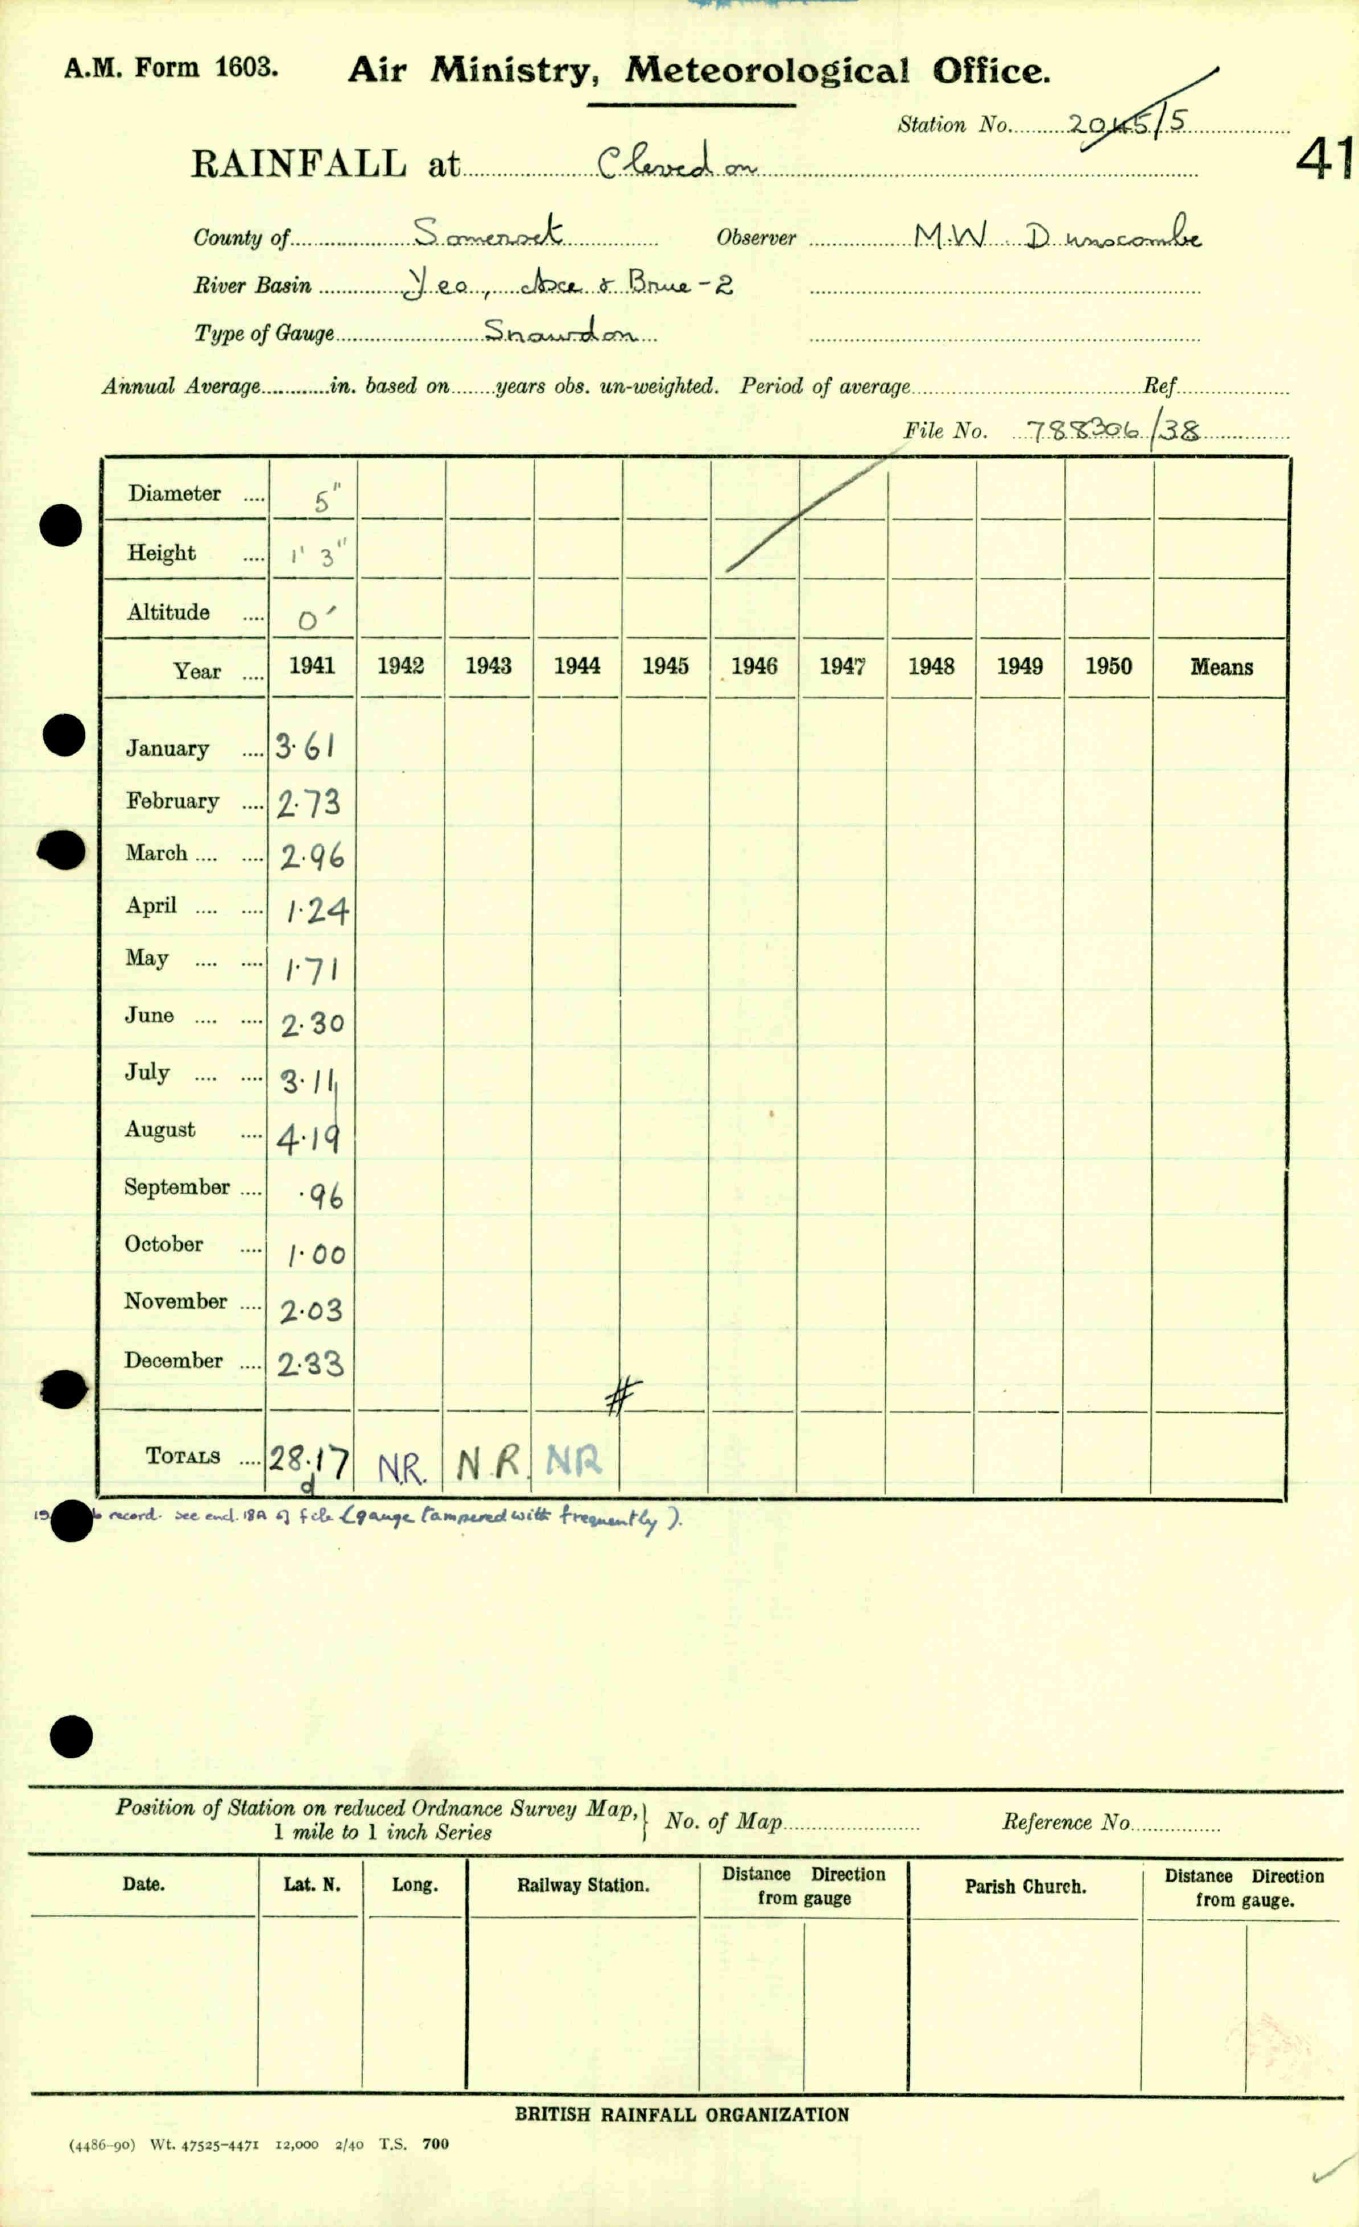 A.M. Form 1603. Air Ministry, Meteorological Office.
Station No. 2045/5
41
RAINFALL at Clevedon
County of Somerset Observer M.W. Dunscombe
River Basin Yeo, Axe & Brue - 2
Type of Gauge Snowdon
Annual Average in. based on years obs. un-weighted. Period of average Ref
File No. 788306/38
Diameter .... 5"
Height .... 1' 3"
Altitude .... 0'
Year .... 1941 1942 1943 1944 1945 1946 1947 1948 1949 1950 Means
January .... 3.61
February .... 2.73
March .... .... 2.96
April .... .... 1.24
May .... .... 1.71
June .... .... 2.30
July .... .... 3.11
August .... 4.19
September .... .96
October .... 1.00
November .... 2.03
December .... 2.33
#
TOTALS .... 28.17 N.R. N.R. NR
d
record. see encl. 18A of file (gauge tampered with frequently).
Position of Station on reduced Ordnance Survey Map, } No. of Map Reference No
1 mile to 1 inch Series
Date. Lat. N. Long. Railway Station. Distance Direction from gauge Parish Church. Distance Direction from gauge.
BRITISH RAINFALL ORGANIZATION
(4486-90) Wt. 47525-4471 12,000 2/40 T.S. 700